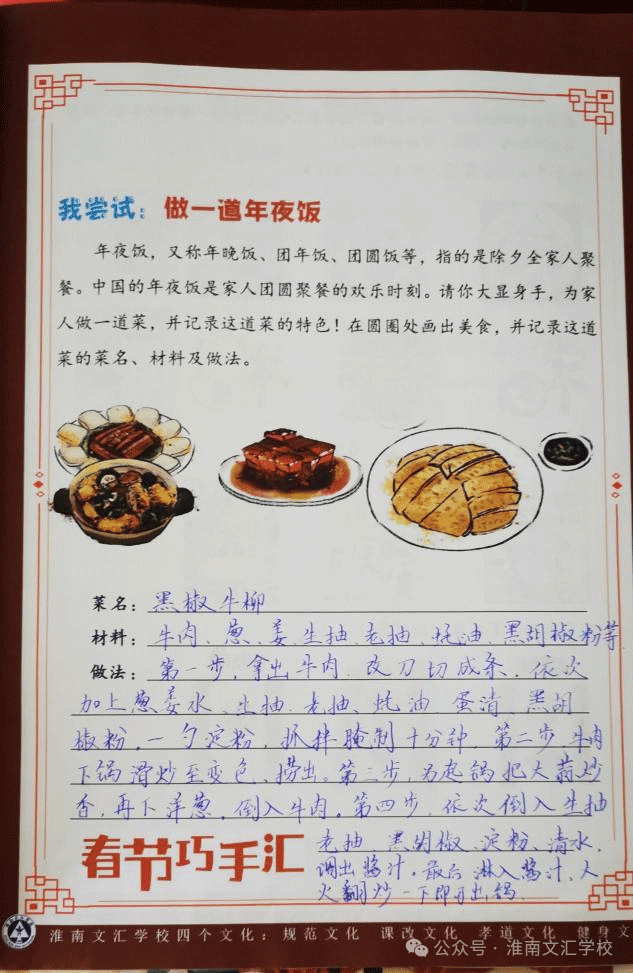 我尝试：做一道年夜饭
年夜饭，又称年晚饭、团年饭、团圆饭等，指的是除夕全家人聚
餐。中国的年夜饭是家人团圆聚餐的欢乐时刻。请你大显身手，为家
人做一道菜，并记录这道菜的特色！在圆圈处画出美食，并记录这道
菜的菜名、材料及做法。
菜名：黑椒牛柳
材料：牛肉、葱、姜、生抽、老抽、蚝油、黑胡椒粉等
做法：第一步，拿出牛肉，改刀切成条，依次
加上葱姜水、生抽、老抽、蚝油、蛋清、黑胡
椒粉，一勺淀粉，抓拌腌制十分钟。第二步，牛肉
下锅滑炒至变色、捞出。第三步，另起锅把大蒜炒
香，再下洋葱，倒入牛肉。第四步，依次倒入生抽
老抽、黑胡椒、淀粉、清水，
调出酱汁。最后淋入酱汁，大
火翻炒一下即可出锅。
春节巧手汇
淮南文汇学校四个文化：规范文化 课改文化 孝道文化 健身文
公众号·淮南文汇学校